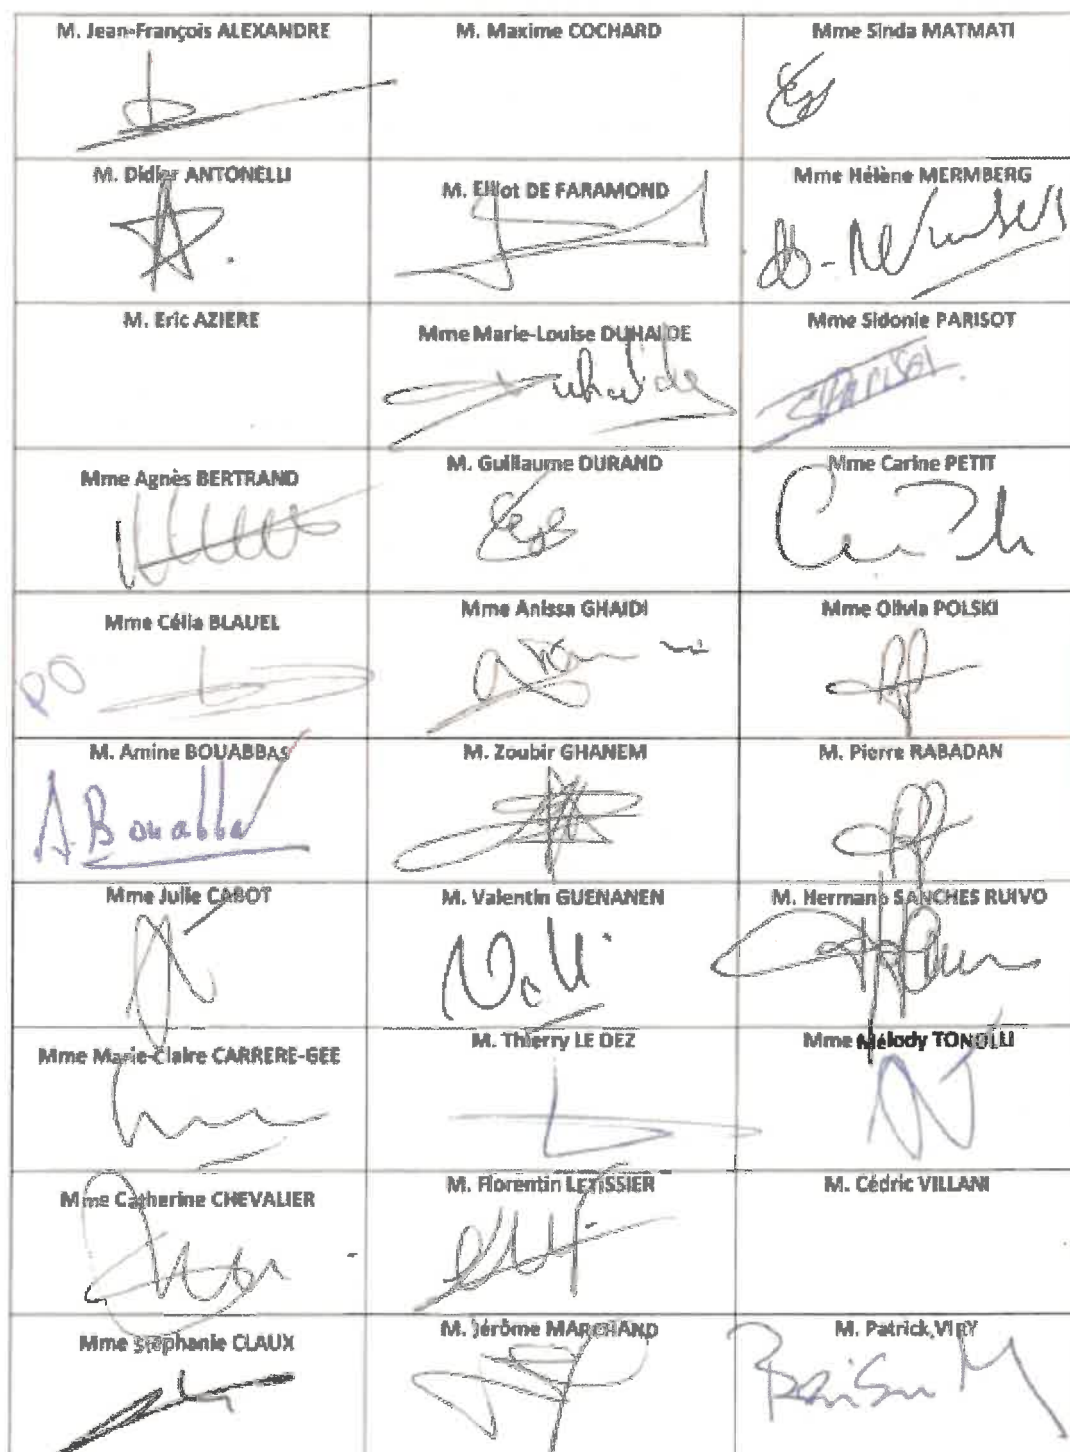 M. Jean-François ALEXANDRE
M. Maxime COCHARD
Mme Sinda MATMATI
M. Didier ANTONELLI
M. Elliot DE FARAMOND
Mme Hélène MERMBERG
M. Eric AZIERE
Mme Marie-Louise DUHALDE
Duhalde
Mme Sidonie PARISOT
SParisot
Mme Agnès BERTRAND
M. Guillaume DURAND
Mme Carine PETIT
Mme Célia BLAUEL
PO
Mme Anissa GHAIDI
Mme Olivia POLSKI
M. Amine BOUABBAS
A Bouabba
M. Zoubir GHANEM
M. Pierre RABADAN
Mme Julie CABOT
M. Valentin GUENANEN
M. Hermano SANCHES RUIVO
Mme Marie-Claire CARRERE-GEE
M. Thierry LE DEZ
Mme Mélody TONOLLI
Mme Catherine CHEVALIER
M. Florentin LETISSIER
M. Cédric VILLANI
Mme Stéphanie CLAUX
M. Jérôme MARCHAND
M. Patrick VIRY